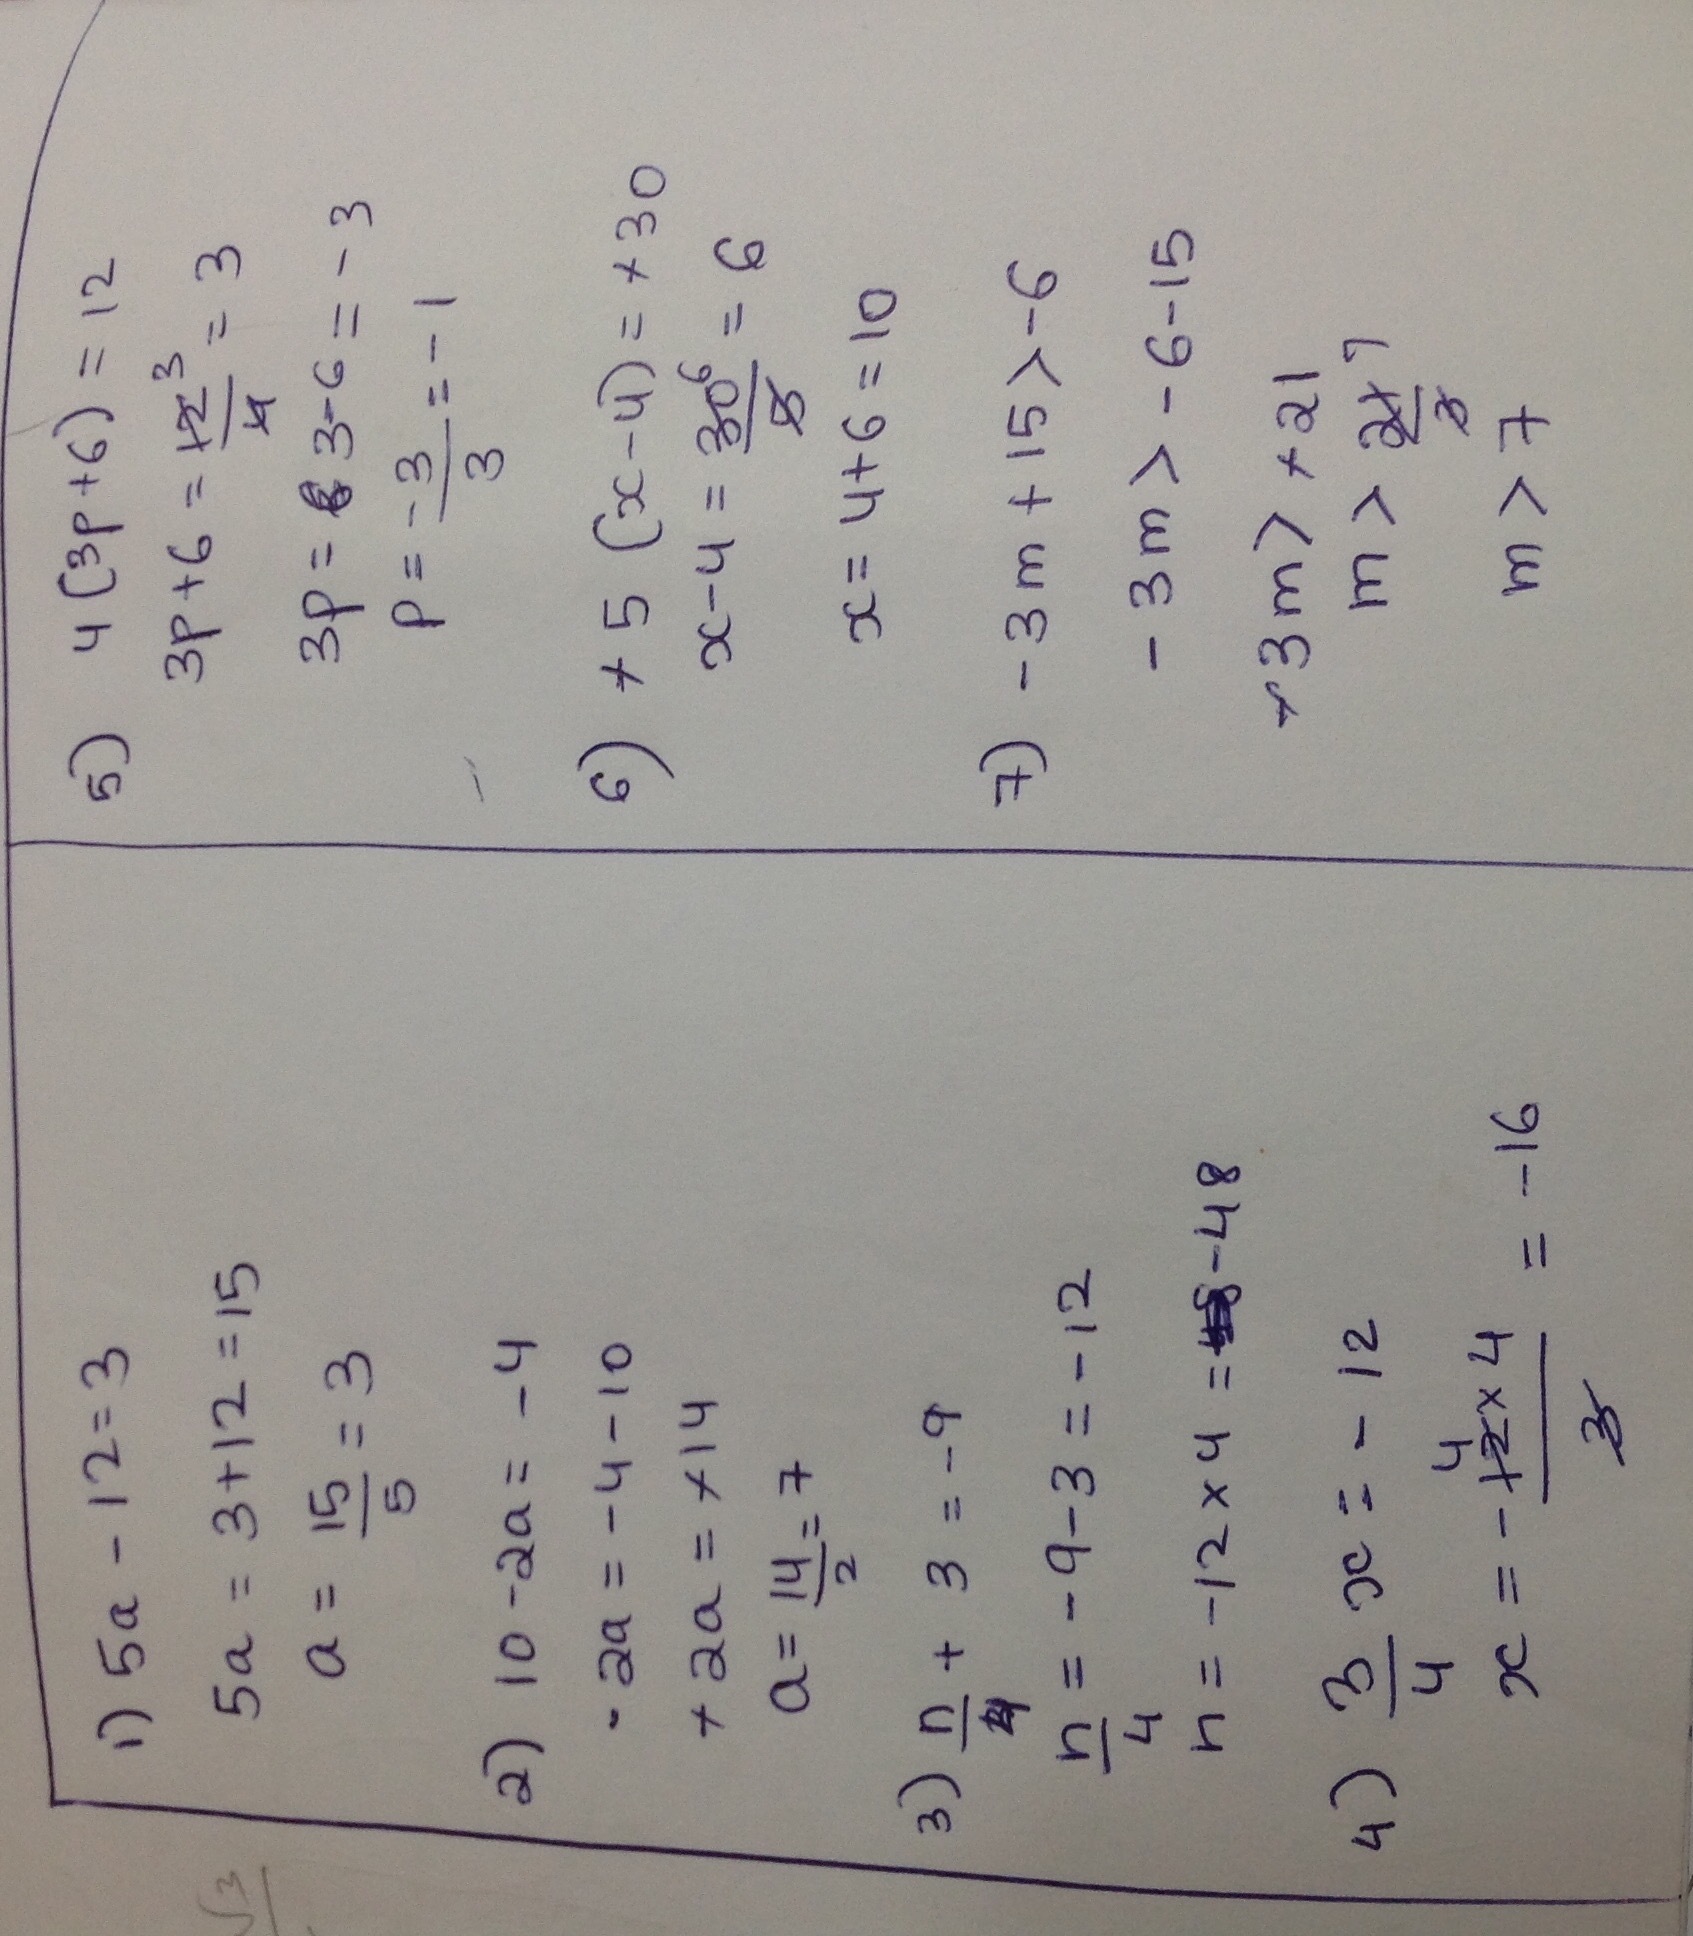 1) 5a - 12 = 3
5a = 3 + 12 = 15
a = 15/5 = 3
2) 10 - 2a = -4
-2a = -4 - 10
+2a = +14
a = 14/2 = 7
3) n/4 + 3 = -9
n/4 = -9 - 3 = -12
n = -12 x 4 = -48
4) 3/4 x = -12
x = -12 x 4/3 = -16
4
5) 4(3p + 6) = 12
3p + 6 = 12/4 = 3
3
3p = 3 - 6 = -3
p = -3/3 = -1
6) +5(x - 4) = +30
x - 4 = 30/5 = 6
6
x = 4 + 6 = 10
7) -3m + 15 > -6
-3m > -6 - 15
+3m > +21
m > 21/3
7
m > 7